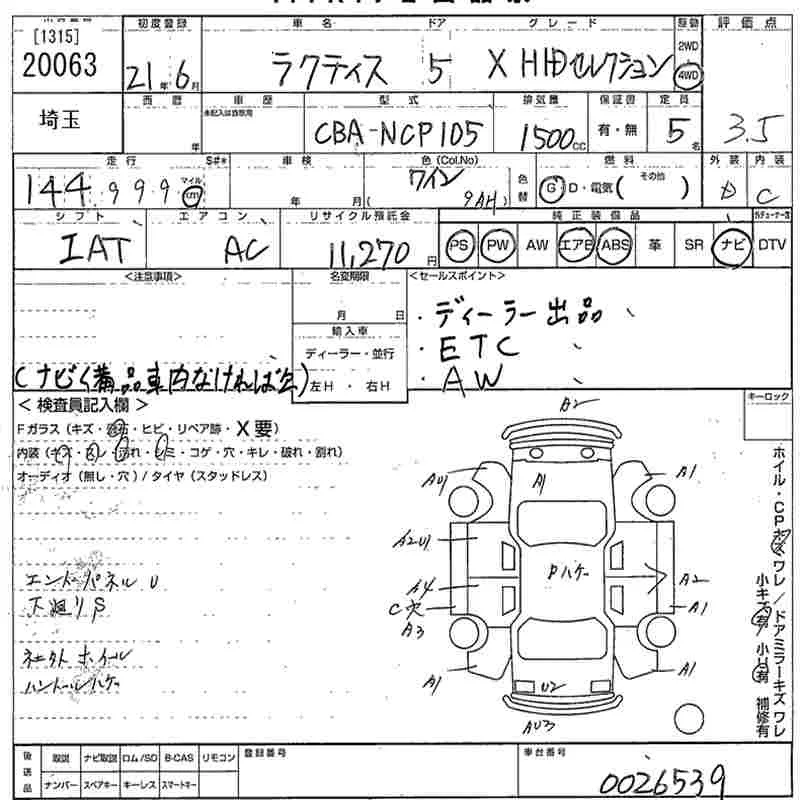 [1315]
20063
初度登録
21年6月
車名
ラクティス
ドア
5
グレード
X HIDセレクション
駆動
2WD
4WD
評価点
3.5
埼玉
西暦
年
車歴
型式
CBA-NCP105
排気量
1500cc
保証書
有・無
定員
5名
走行
144,999
マイル
km
S#*
車検
年 月(
色(Col.No)
ワイン
9AH)
色替
燃料
G D・電気( その他 )
外装
内装
C
シフト
IAT
エアコン
AC
リサイクル預託金
11,270円
純正装備品
PS PW AW エアB ABS 革 SR ナビ DTV
<注意事項>
名変期限
月 日
輸入車
ディーラー・並行
左H・右H
<セールスポイント>
・ディーラー出品
・ETC
・AW
(ナビ備品車内なければ欠)
<検査員記入欄>
Fガラス(キズ・ ・ヒビ・リペア跡・X要)
内装(キズ・ ・汚れ・シミ・コゲ・穴・キレ・破れ・割れ)
オーディオ(無し・穴)/タイヤ(スタッドレス)
エンドパネルU
下廻りS
ホイール
ハンドルハゲ
キーロック
ホイル・CPキズワレ/ドアミラーキズワレ
小キズ有/小U有 補修有
A2
AU1
A1
A1
A2U1
Pハゲ
A4
A2
C穴
A1
A3
A1
U2
A1
AU3
後送品
取説 ナビ取説 ロム/SD B-CAS リモコン
ナンバー スペアキー キーレス スマートキー
登録番号
車台番号
0026539